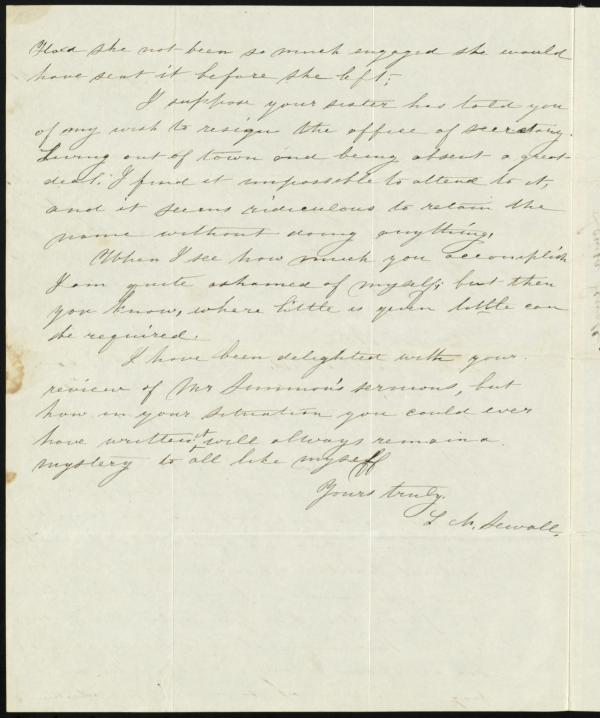 Had she not been so much engaged she would
have sent it before she left;
I suppose your sister has told you
of my wish to resign the office of secretary.
Living out of town and being absent a great
deal, I find it impossible to attend to it,
and it seems ridiculous to retain the
name without doing anything.
When I see how much you accomplish
I am quite ashamed of myself; but then
you know, where little is given little can
be required.
I have been delighted with your
review of Mr Simmon's sermons, but
how in your situation you could ever
have written it will always remain a
mystery to all like myself
Yours truly.
L M. Sewall.